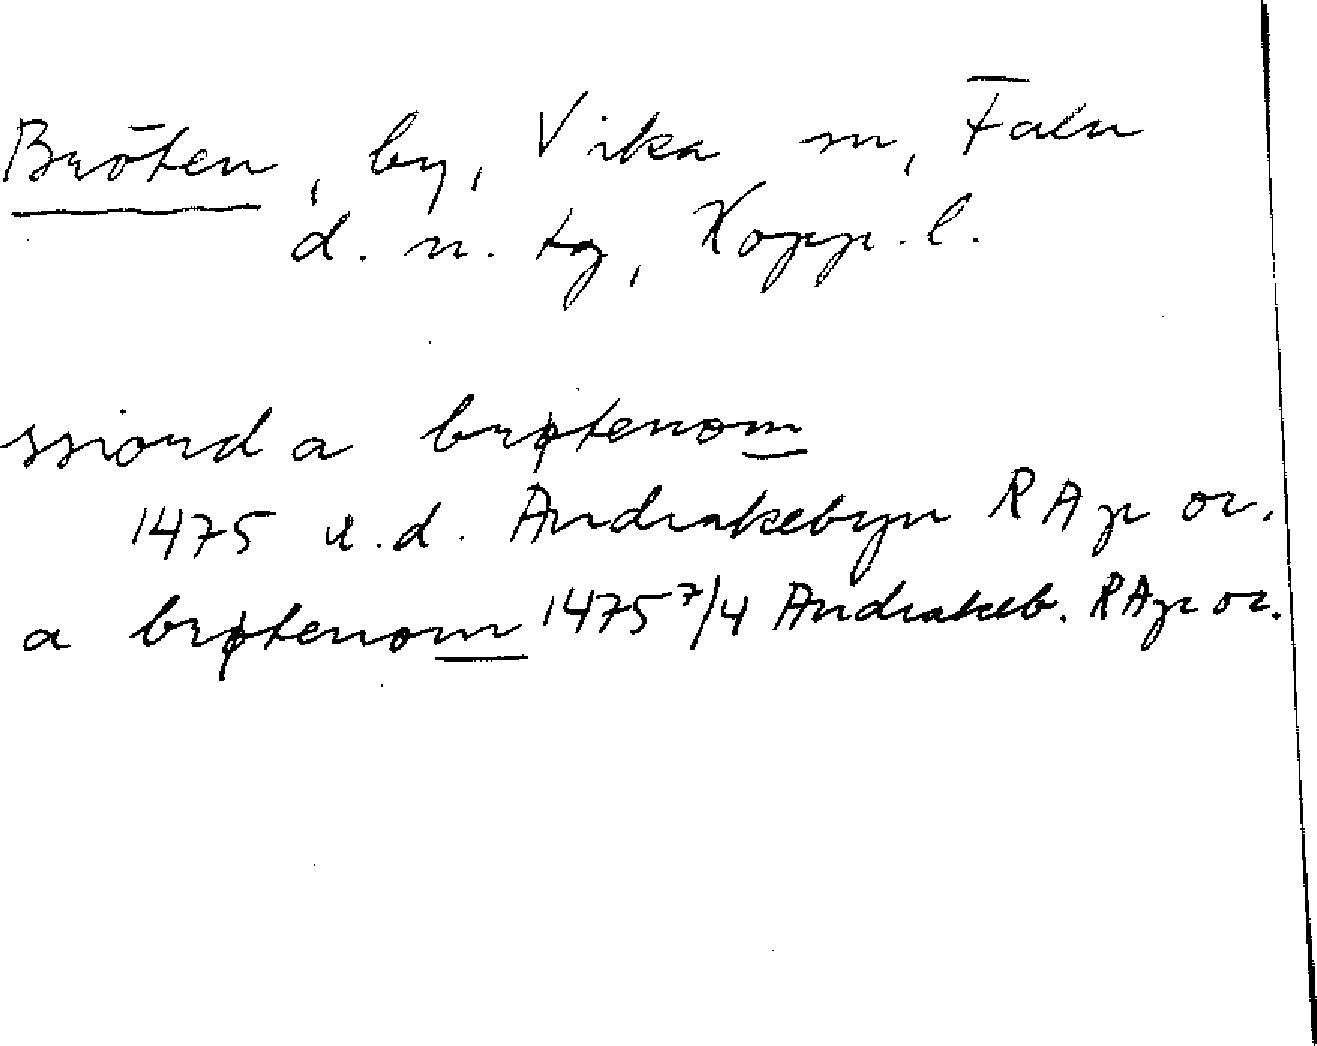 Bröten, by, Vika sn, Falu
d. n. tg, Kopp. l.
ssiord a brøtenom
1475 u.d. Andrakebyn RAp or.
a brøtenom 1475 7/4 Andrakeb. RAp or.